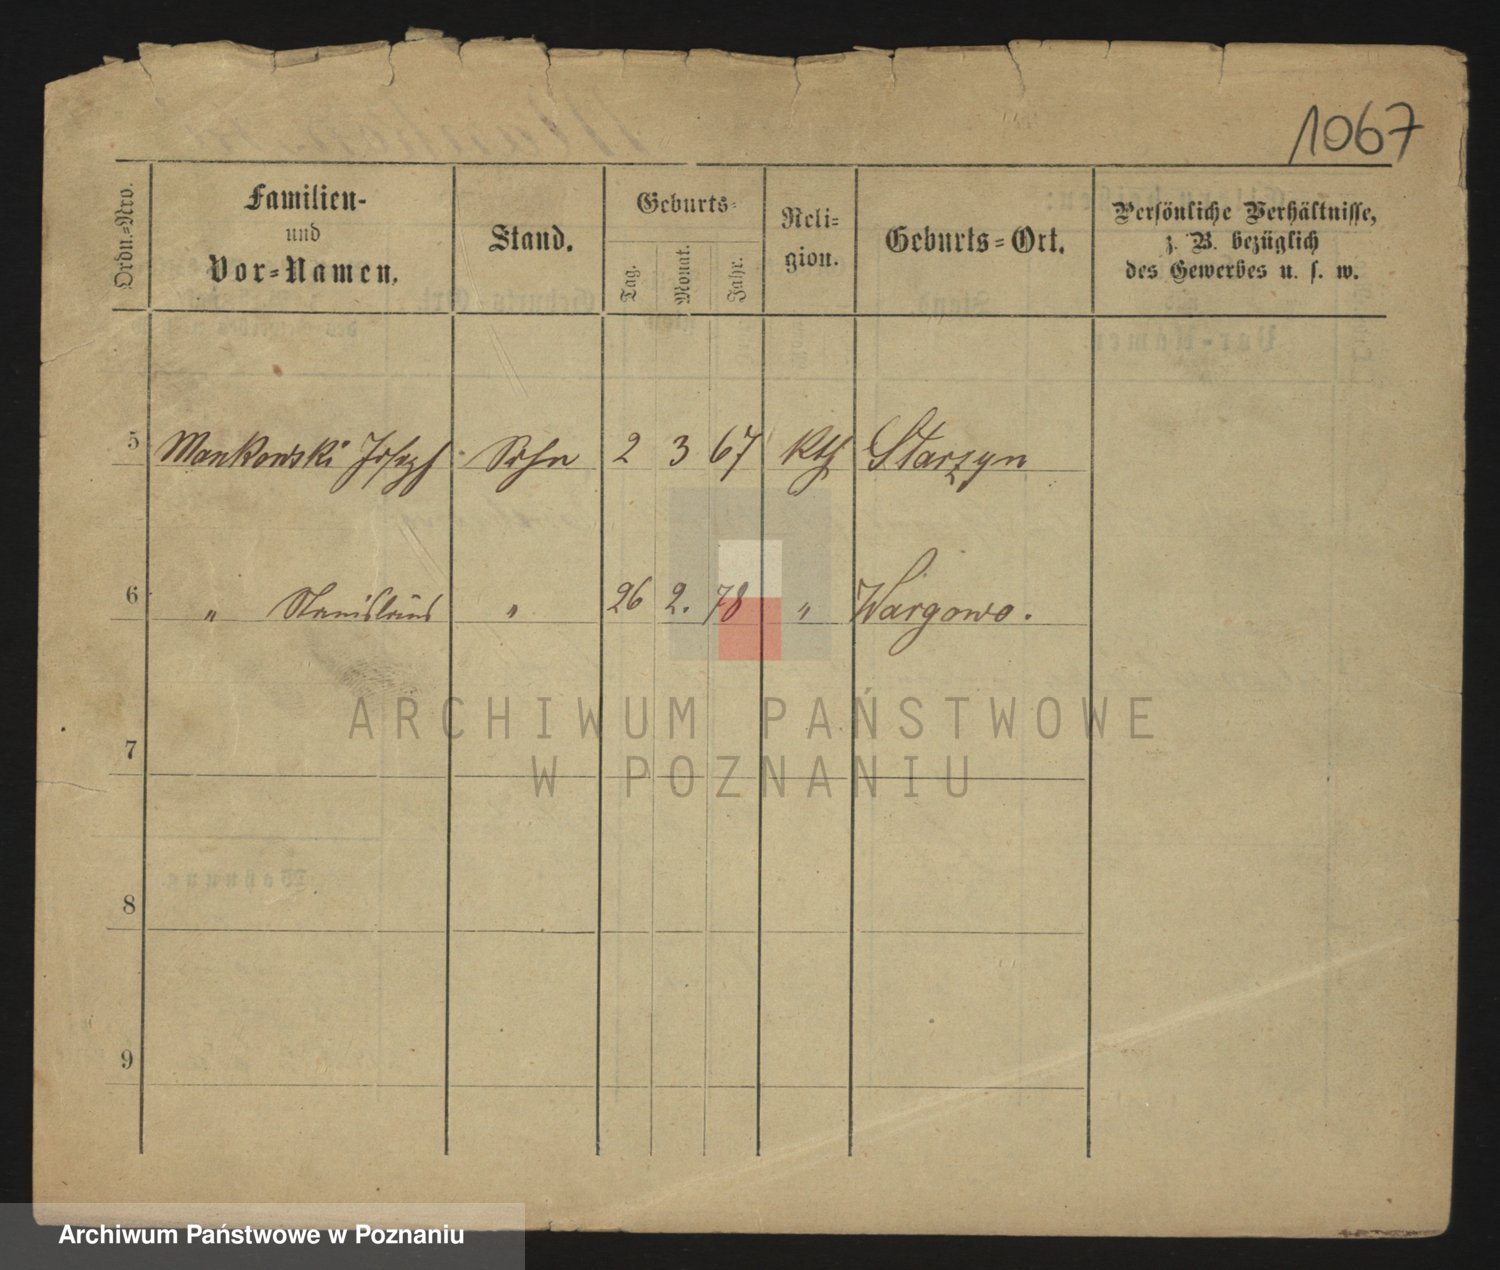 1067
Ordn.-Nro.
Familien-
und
Vor-Namen.
Stand.
Geburts-
Tag.
Monat.
Jahr.
Reli-
gion.
Geburts-Ort.
Persönliche Verhältnisse,
z. B. bezüglich
des Gewerbes u. s. w.
5 Mankowski Joseph Sohn 2 3 67 kth Starzyn
6 " Stanislaus " 26 2. 78 " Wargowo.
7
8
9
ARCHIWUM PAŃSTWOWE
W POZNANIU
Archiwum Państwowe w Poznaniu